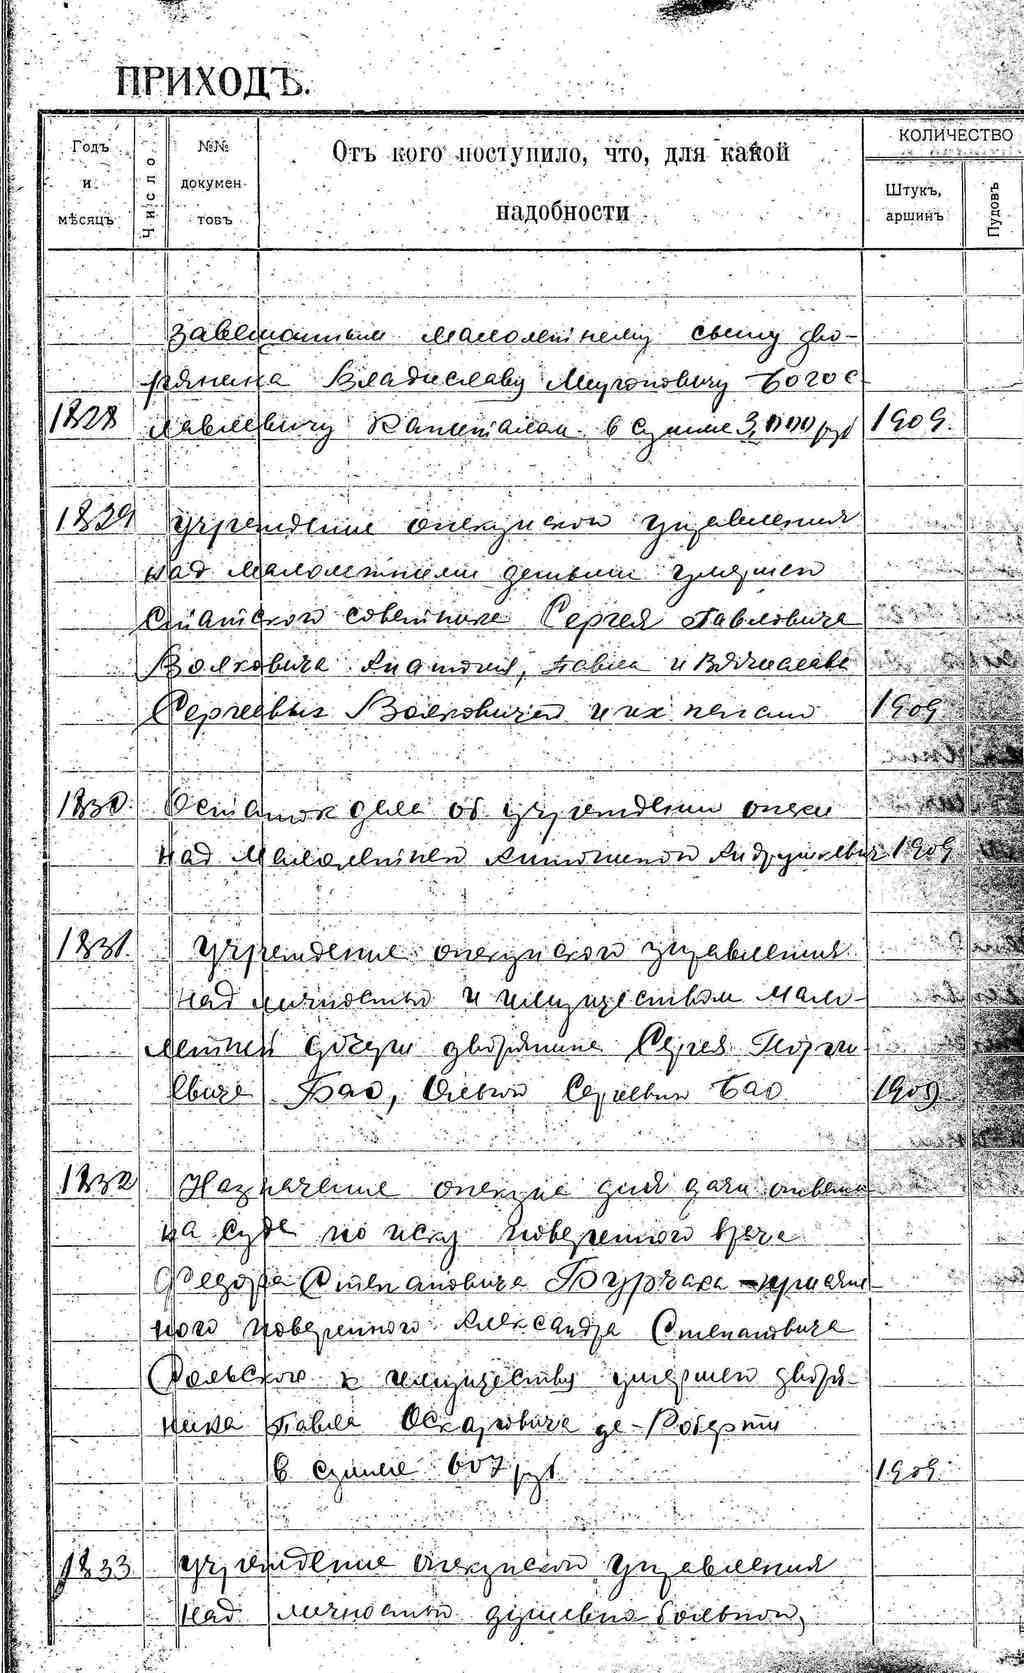 ПРИХОДЪ.
Годъ и мѣсяцъ
Число
№№ докумен- товъ
Отъ кого поступило, что, для какой
надобности
КОЛИЧЕСТВО
Штукъ, аршинъ
Пудовъ
завещанным малолетнему сыну дво-
рянина Владиславу Богос-
1828 лавлевичу капиталом в сумме 3,000 руб 1909.
1829 Учреждение опекунского управления
над малолетними детьми умершего
Статского советника Сергея Павловича
Волковича Анатолия, Павла и Вячеслава
Сергеевых Волковичей и их 1909
1830. Остаток дела об учреждении опеки
над малолетней Антониной Андрушкевич 1909
1831. Учреждение опекунского управления
над личностью и имуществом мало-
летней дочери дворянина Сергея Георги-
евича Бао, Ольгой Сергеевны Бао 1909
1832 Назначение опекуна для дачи ответа
на суде по иску поверенного врача
Федора Степановича Бурчака - присяж-
ного поверенного Александра Степановича
Вольского к имуществу умершего дворя-
нина Павла Оскаровича де-Роберти
в сумме 607 руб 1909
1833 Учреждение опекунского управления
над личностью душевно-больной,